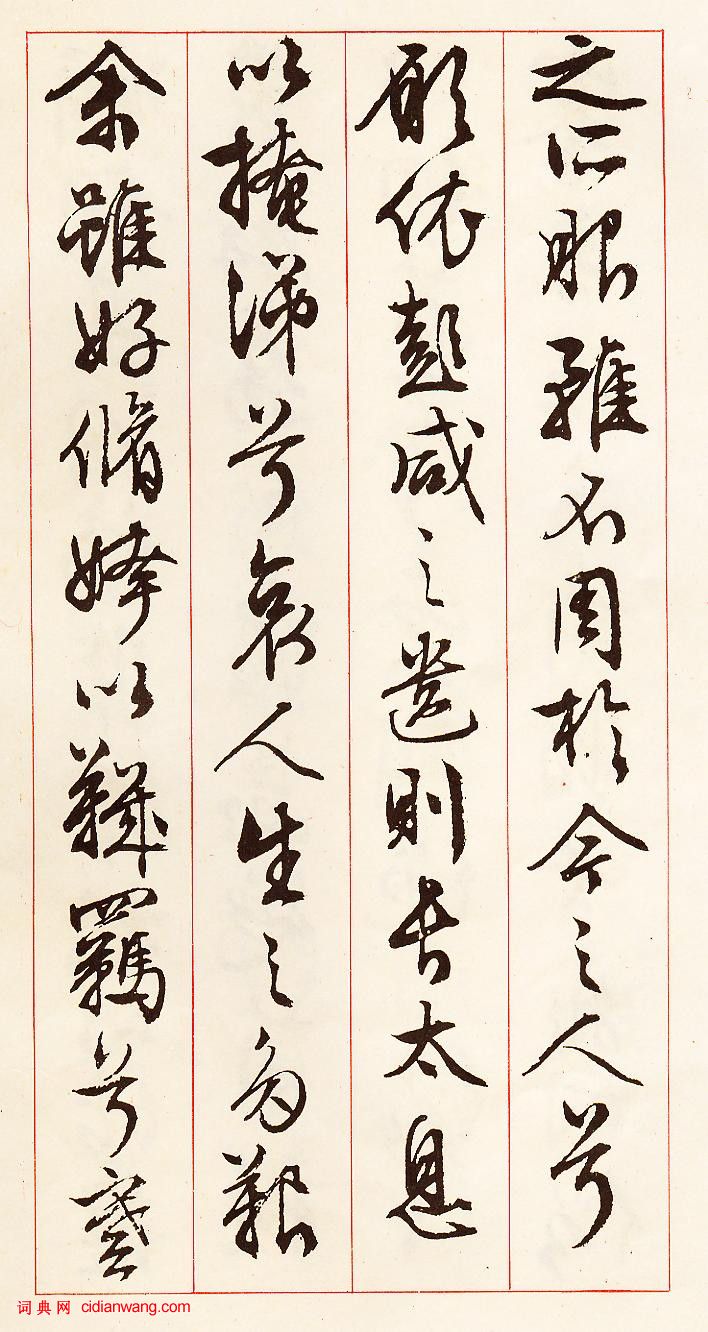 之所服雖不周於今之人兮
願依彭咸之遺則長太息
以掩涕兮哀人生之多艱
余雖好脩姱以鞿羈兮謇
词典网 cidianwang.com